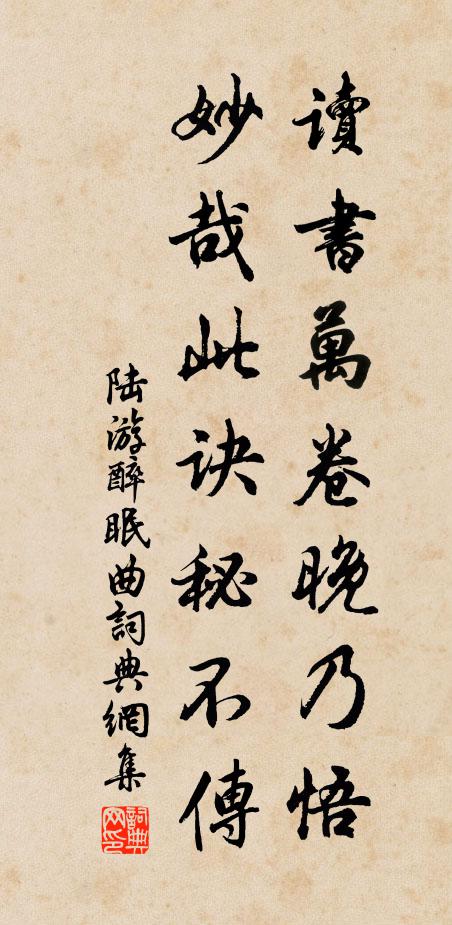 讀書萬卷晚乃悟
妙哉此訣秘不傳
陆游醉眠曲詞典網集
詞典网印